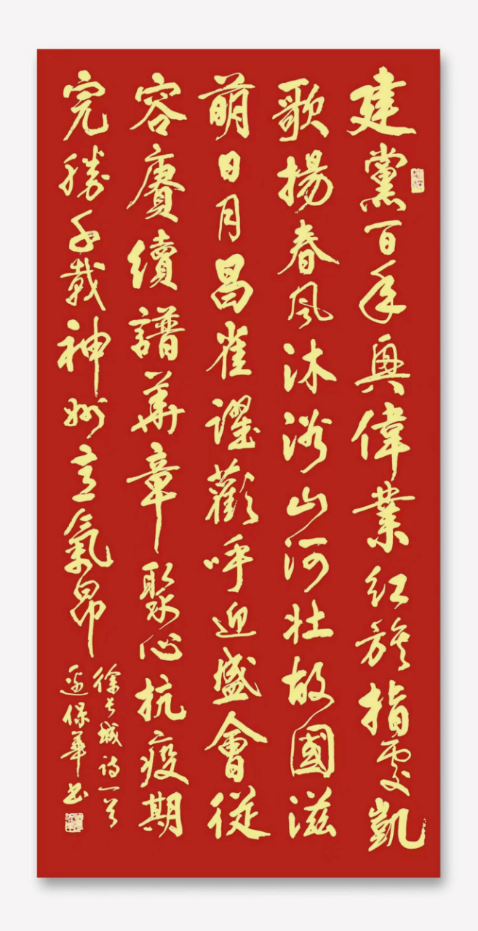 建黨百年興偉業紅旗指處凱
歌揚春風沐浴山河壯故國滋
萌日月昌雀躍歡呼迎盛會從
容賡續譜華章聚心抗疫期
完勝千載神州意氣昂
徐長城詩一首
保華书